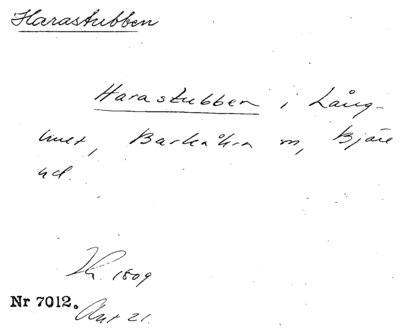 Harastubben
Harastubben i Lång-
hult, Barkåkra sn, Bjäre
hd.
1809
Nr 7012.
Akt 21.